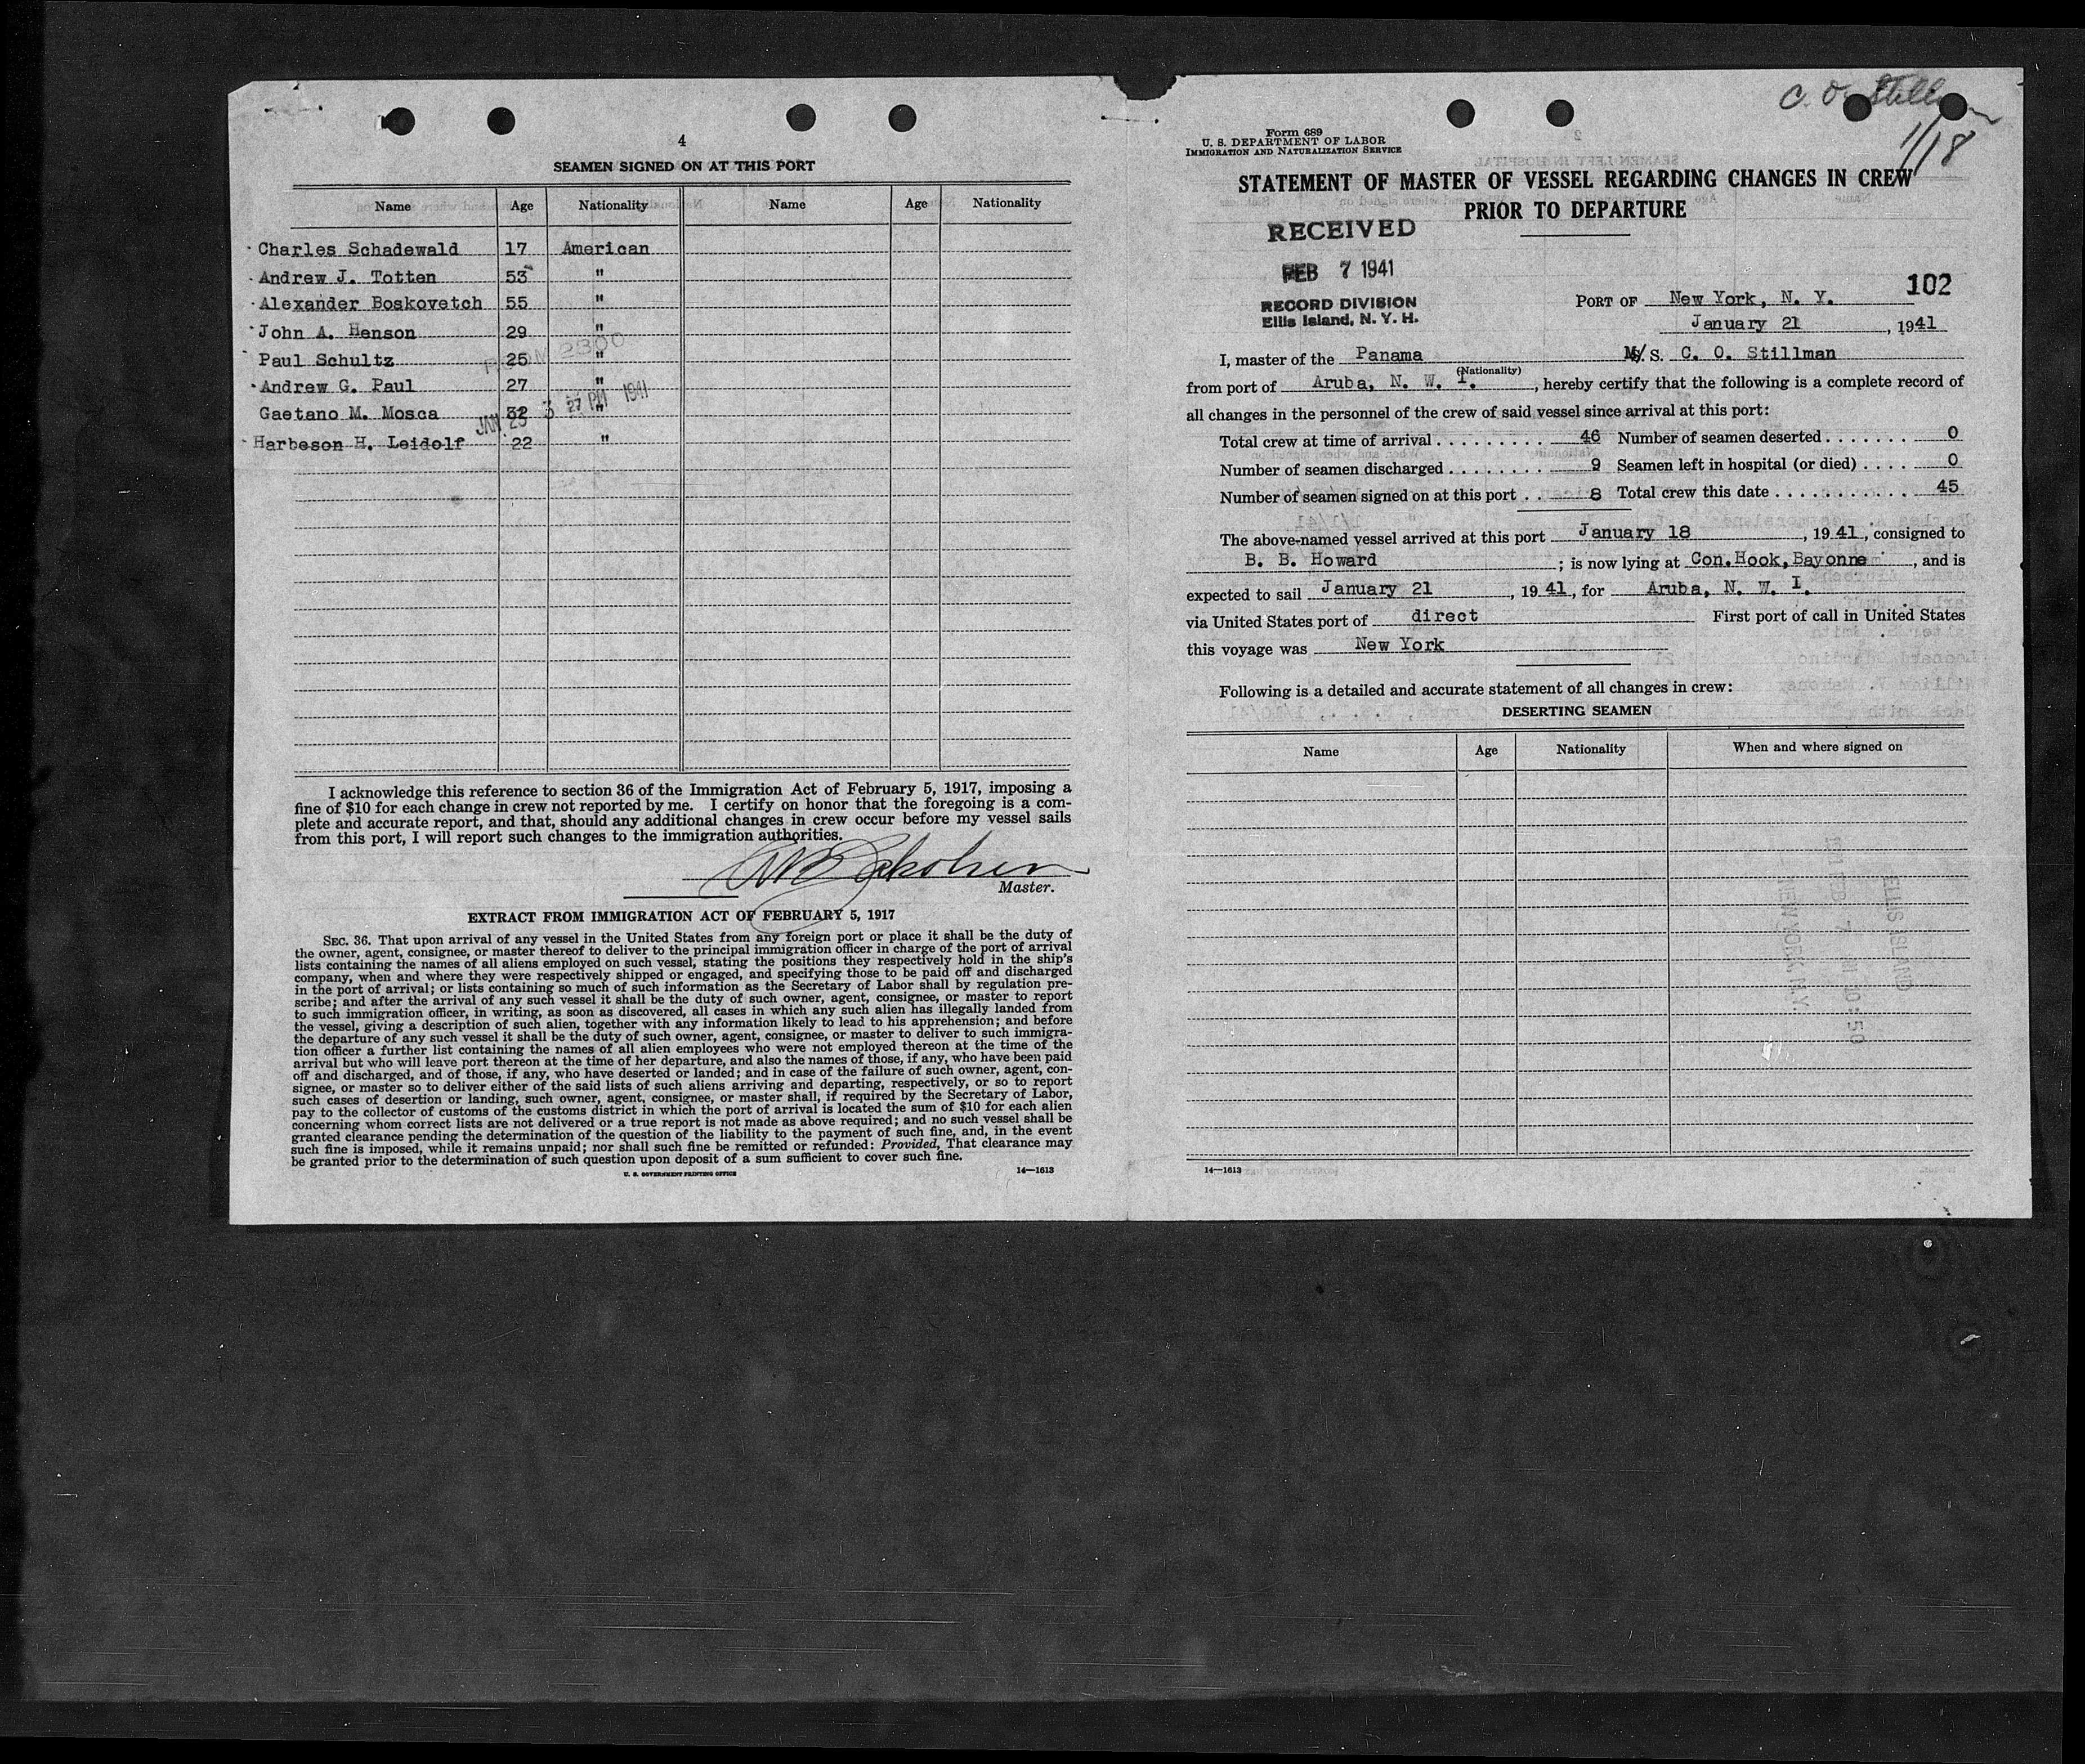 4
SEAMEN SIGNED ON AT THIS PORT
Name Age Nationality Name Age Nationality
Charles Schadewald 17 American
Andrew J. Totten 53 "
Alexander Boskovetch 55 "
John A. Henson 29 "
Paul Schultz 25 "
Andrew G. Paul 27 "
Gaetano M. Mosca 32 "
Harbeson H. Leidolf 22 "
JAN 23 3 27 PM 1941
I acknowledge this reference to section 36 of the Immigration Act of February 5, 1917, imposing a
fine of $10 for each change in crew not reported by me. I certify on honor that the foregoing is a com-
plete and accurate report, and that, should any additional changes in crew occur before my vessel sails
from this port, I will report such changes to the immigration authorities.
Master.
EXTRACT FROM IMMIGRATION ACT OF FEBRUARY 5, 1917
SEC. 36. That upon arrival of any vessel in the United States from any foreign port or place it shall be the duty of
the owner, agent, consignee, or master thereof to deliver to the principal immigration officer in charge of the port of arrival
lists containing the names of all aliens employed on such vessel, stating the positions they respectively hold in the ship's
company, when and where they were respectively shipped or engaged, and specifying those to be paid off and discharged
in the port of arrival; or lists containing so much of such information as the Secretary of Labor shall by regulation pre-
scribe; and after the arrival of any such vessel it shall be the duty of such owner, agent, consignee, or master to report
to such immigration officer, in writing, as soon as discovered, all cases in which any such alien has illegally landed from
the vessel, giving a description of such alien, together with any information likely to lead to his apprehension; and before
the departure of any such vessel it shall be the duty of such owner, agent, consignee, or master to deliver to such immigra-
tion officer a further list containing the names of all alien employees who were not employed thereon at the time of the
arrival but who will leave port thereon at the time of her departure, and also the names of those, if any, who have been paid
off and discharged, and of those, if any, who have deserted or landed; and in case of the failure of such owner, agent, con-
signee, or master so to deliver either of the said lists of such aliens arriving and departing, respectively, or so to report
such cases of desertion or landing, such owner, agent, consignee, or master shall, if required by the Secretary of Labor,
pay to the collector of customs of the customs district in which the port of arrival is located the sum of $10 for each alien
concerning whom correct lists are not delivered or a true report is not made as above required; and no such vessel shall be
granted clearance pending the determination of the question of the liability to the payment of such fine, and, in the event
such fine is imposed, while it remains unpaid; nor shall such fine be remitted or refunded: Provided, That clearance may
be granted prior to the determination of such question upon deposit of a sum sufficient to cover such fine.
U. S. GOVERNMENT PRINTING OFFICE 14—1613
C. O. Stillman
1/18
Form 689
U. S. DEPARTMENT OF LABOR
IMMIGRATION AND NATURALIZATION SERVICE
STATEMENT OF MASTER OF VESSEL REGARDING CHANGES IN CREW
PRIOR TO DEPARTURE
RECEIVED
FEB 7 1941
RECORD DIVISION
Ellis Island, N. Y. H.
102
PORT OF New York, N. Y.
January 21, 1941
I, master of the Panama M/S. C. O. Stillman
(Nationality)
from port of Aruba, N. W. I., hereby certify that the following is a complete record of
all changes in the personnel of the crew of said vessel since arrival at this port:
Total crew at time of arrival . . . . . . . . . 46 Number of seamen deserted . . . . . . . 0
Number of seamen discharged . . . . . . . . 9 Seamen left in hospital (or died) . . . . 0
Number of seamen signed on at this port . . 8 Total crew this date . . . . . . . . . . . 45
The above-named vessel arrived at this port January 18, 1941, consigned to
B. B. Howard; is now lying at Con.Hook, Bayonne, and is
expected to sail January 21, 1941, for Aruba, N. W. I.
via United States port of direct First port of call in United States
this voyage was New York
Following is a detailed and accurate statement of all changes in crew:
DESERTING SEAMEN
Name Age Nationality When and where signed on
ELLIS ISLAND
1941 FEB 7 AM 10:50
NEW YORK, N.Y.
14—1613